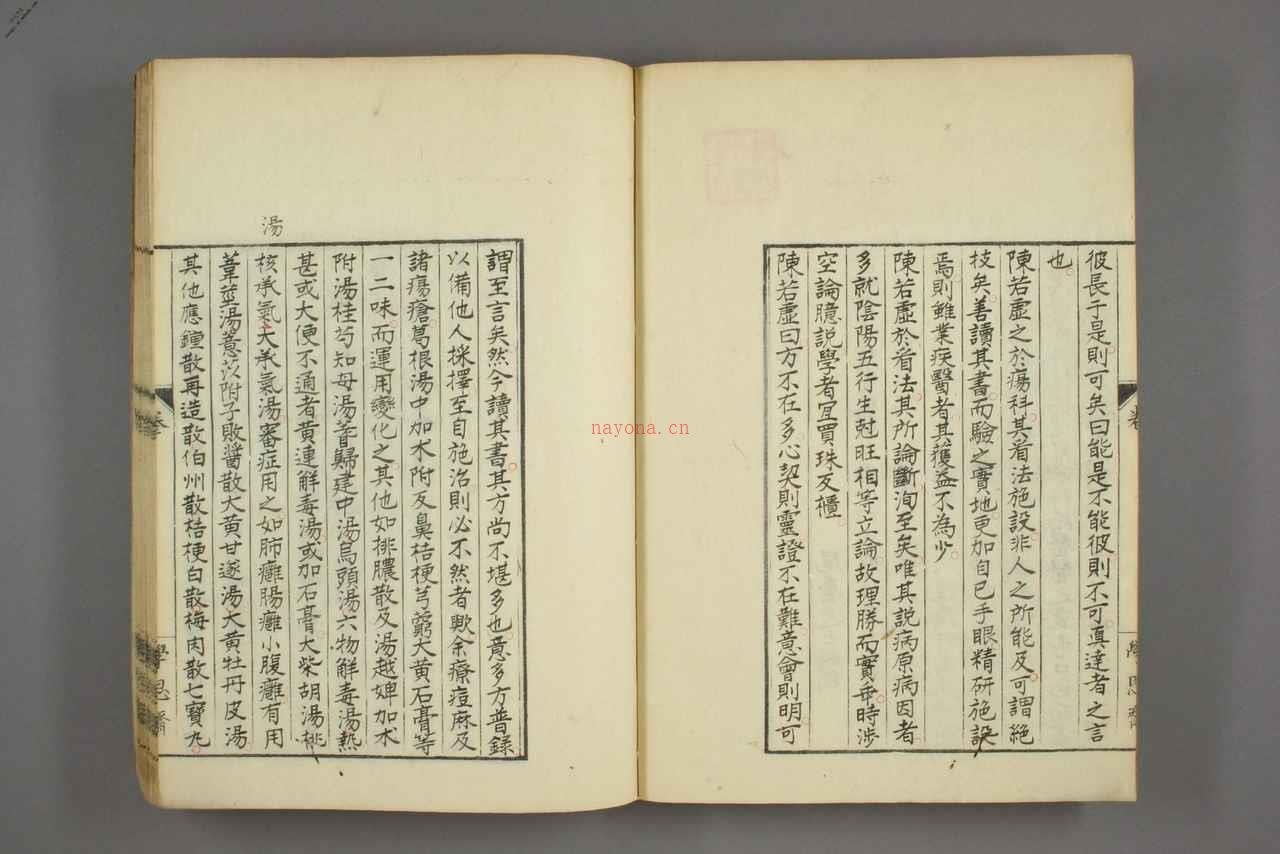 彼長于是則可矣曰能是不能彼則不可真達者之言
也
陳若虛之於瘍科其看法施設非人之所能及可謂絕
技矣善讀其書而驗之實地更加自己手眼精研施設
焉則雖業疾醫者其獲益不為少
陳若虛於看法其所論斷洵至矣唯其説病原病因者
多就陰陽五行生尅旺相等立論故理勝而實乖時涉
空論臆説學者宜買珠反櫃
陳若虛曰方不在多心契則靈證不在難意會則明可
謂至言矣然今讀其書其方尚不堪多也意多方普錄
以備他人採擇至自施治則必不然者歟余療痘麻及
諸瘍瘡葛根湯中加朮附反鼻桔梗芎藭大黃石膏等
一二味而運用變化之其他如排膿散及湯越婢加朮
附湯桂芍知母湯耆歸建中湯烏頭湯六物解毒湯熱
甚或大便不通者黃連解毒湯或加石膏大柴胡湯桃
核承氣大承氣湯審症用之如肺癰腸癰小腹癰有用
湯
葦莖湯薏苡附子敗醬散大黃甘遂湯大黃牡丹皮湯
其他應鍾散再造散伯州散桔梗白散梅肉散七寶丸
nayona.cn